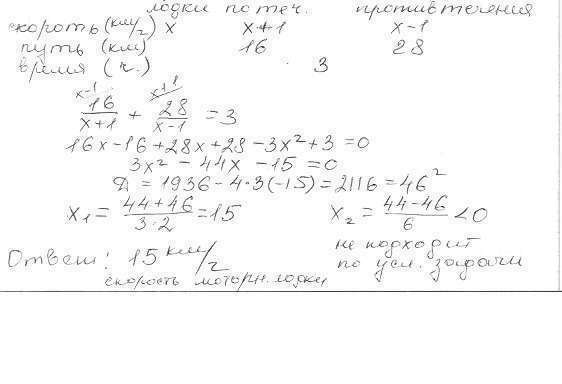 лодки по теч. против течения
скорость (км/г) x x+1 x-1
путь (км) 16 28
время (ч.) 3
x-1 x+1
16/x+1 + 28/x-1 = 3
16x-16+28x+28-3x²+3=0
3x² - 44x -15=0
Д = 1936-4·3(-15)=2116=46²
x₁ = 44+46/3·2 =15 x₂ = 44-46/6 <0
не подходит
Ответ: 15 км/г по усл. задачи
скорость моторн. лодки